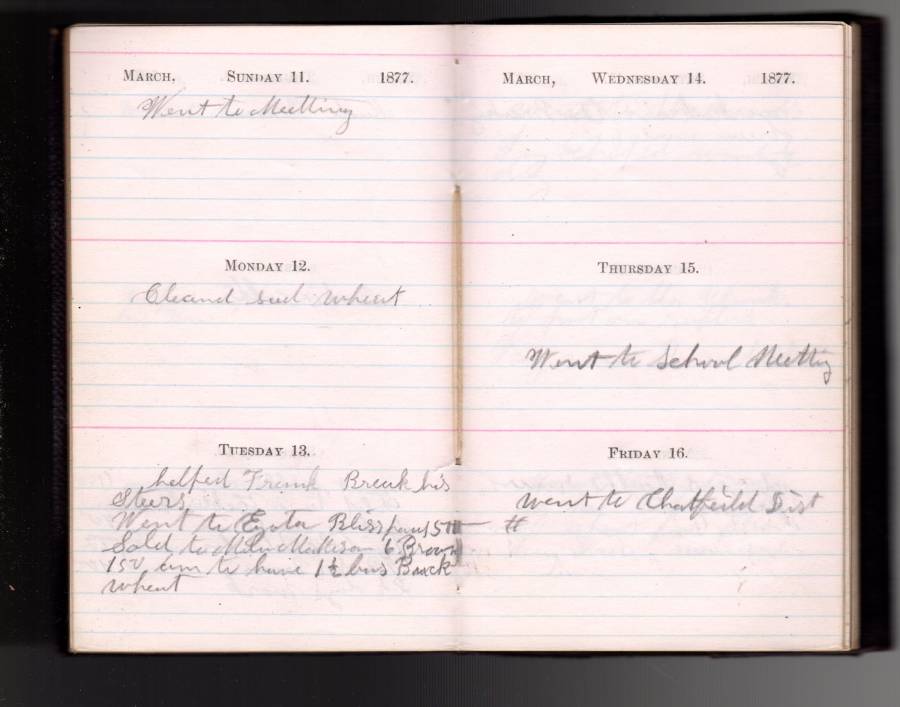 MARCH, SUNDAY 11. 1877.
Went to Meetting
MONDAY 12.
Cleand seed wheat
TUESDAY 13.
helped Frank Break his
Steers
Went to Eyota Bliss
Sold to Milo 6 Brown
150 am to have 1½ bus Buck
wheat
MARCH, WEDNESDAY 14. 1877.
THURSDAY 15.
Went to School Meetting
FRIDAY 16.
went to Chatfeild Dist
#